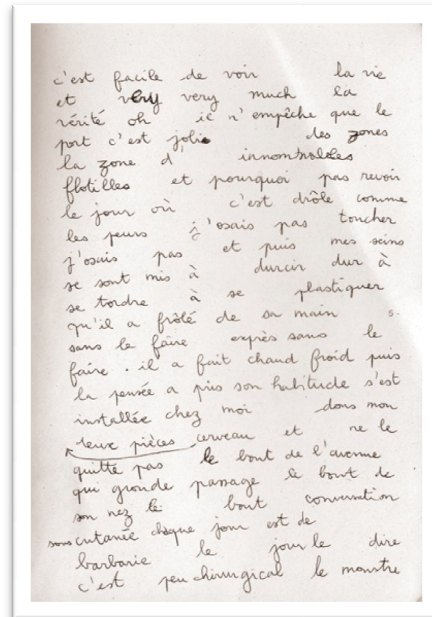 c'est facile de voir la vie
et very very much la
vérité oh ic n'empêche que le
port c'est jolie des zones
la zone d' innombrables
flotilles et pourquoi pas revoir
le jour où c'est drôle comme
les peurs j'osais pas toucher
j'osais pas et puis mes seins
se sont mis à durcir dur à
se tordre à se plastiquer
qu'il a frôlé de sa main s.
sans le faire exprès sans le
faire. il a fait chaud froid puis
la pensée a pris son habitude s'est
installée chez moi dans mon
deux pièces cerveau et ne le
quitte pas le bout de l'avenue
qui gronde passage le bout de
son nez le bout conversation
sous cutanée chaque jour est de
barbarie le jour le dire
c'est peu chirurgical le monstre